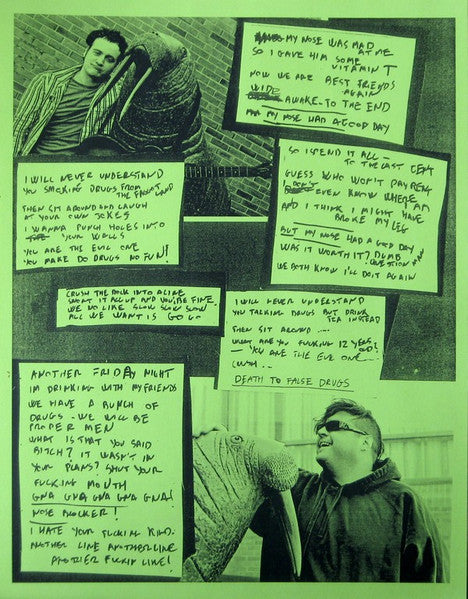 MY NOSE WAS MAD AT ME
SO I GAVE HIM SOME
VITAMIN T
NOW WE ARE BEST FRIENDS
AGAIN
WIDE AWAKE - TO THE END
MY NOSE HAD A GOOD DAY
I WILL NEVER UNDERSTAND
YOU SMOKING DRUGS FROM
THE LAND
THEN SIT AROUND AND LAUGH
AT YOUR OWN JOKES
I WANNA PUNCH HOLES INTO
YOUR WALLS
YOU ARE THE EVIL ONE
YOU MAKE DO DRUGS NO FUN!
SO I SPEND IT ALL -
TO THE LAST CENT
GUESS WHO WON'T PAY RENT
DON'T EVEN KNOW WHERE I AM
AND I THINK I MIGHT HAVE
BROKE MY LEG
BUT MY NOSE HAD A GOOD DAY
WAS IT WORTH IT? DUMB
QUESTION
WE BOTH KNOW I'LL DO IT AGAIN
CRUSH THE ROCK INTO A LINE
SNORT IT ALL UP AND YOU'RE FINE
WE NO LIKE SLOW SLOW SLOW
ALL WE WANT IS GO GO
I WILL NEVER UNDERSTAND
YOU TALKING DRUGS BUT DRINK
TEA INSTEAD
THEN SIT AROUND ....
WHAT ARE YOU FUCKING 12 YEARS
OLD?
- YOU ARE THE EVIL ONE -
DEATH TO FALSE DRUGS
ANOTHER FRIDAY NIGHT
IM DRINKING WITH MY FRIENDS
WE HAVE A BUNCH OF
DRUGS - WE WILL BE
PROPER MEN
WHAT IS THAT YOU SAID
BITCH? IT WASN'T IN
YOUR PLANS? SHUT YOUR
FUCKING MOUTH
GNA GNA GNA GNA GNA!
NOSE BLOCKER!
I HATE YOUR FUCKING KIND.
ANOTHER LINE ANOTHER LINE
ANOTHER FUCKIN LINE!